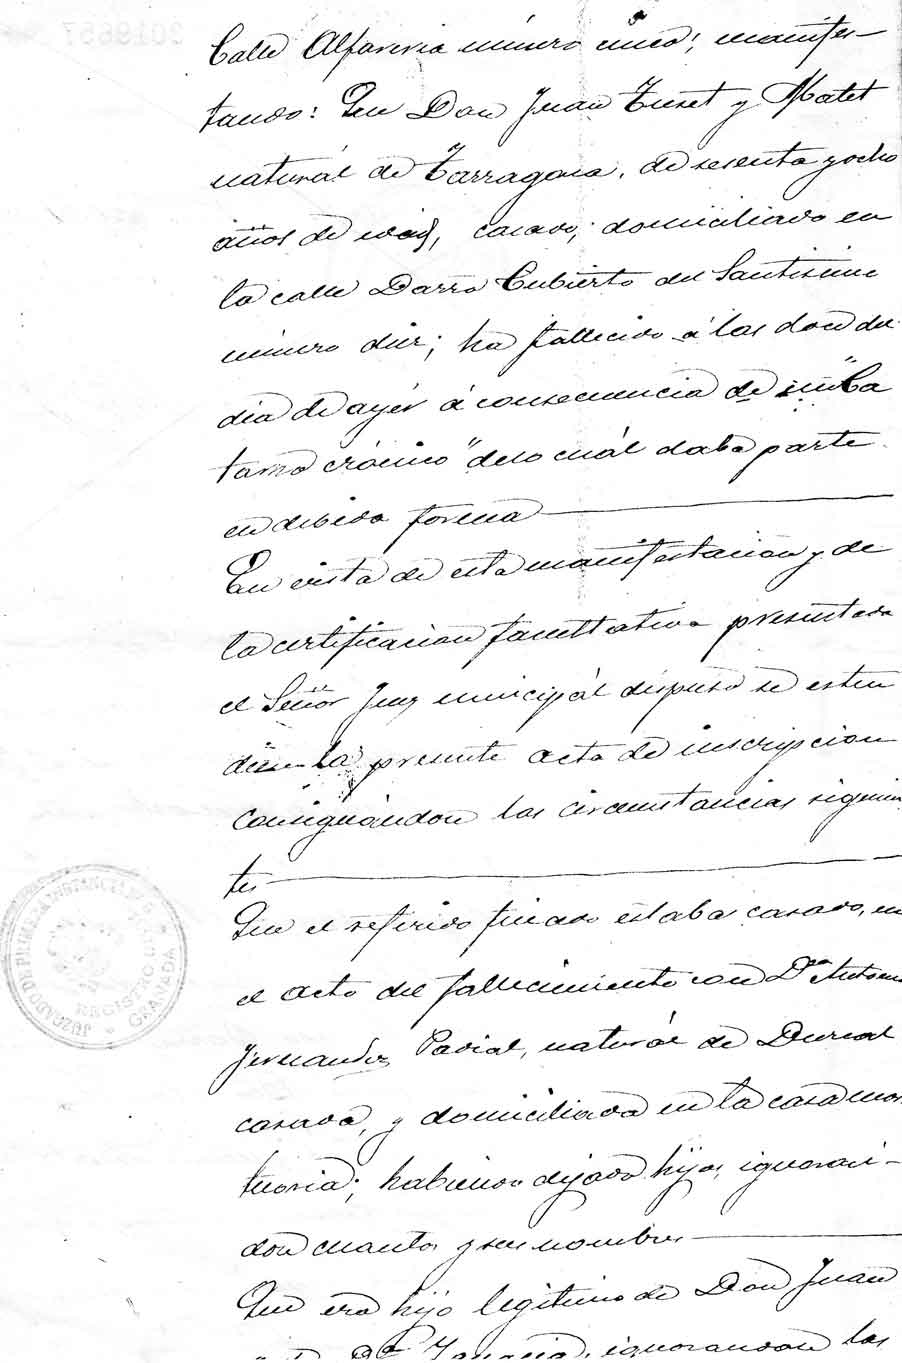 Calle Alfareria número cinco; manifes-
tando: Que Don Juan Tuset y Matet
naturál de Tarragona, de sesenta y ocho
años de edad, casado, domiciliado en
la calle Darro Cubierto del Santisimo
número diez; ha fallecido á las doce del
dia de ayér á consecuencia de un "Ca
tarro crónico" de lo cuál daba parte
en debida forma
En vista de esta manifestacion y de
la certificacion facultativa presentada
el Señor Juez municipál dispuso se esten
diese la presente acta de inscripcion
consignándose las circunstancias siguien
tes
Que el referido finado estaba casado, en
el acto del fallecimiento con Dª Antonia
Fernandez Padial, naturál de Durcal
casada, y domiciliada en la casa mor
tuoria; habiendo dejado hijos, ignoran-
dose cuantos y sus nombres
Que era hijo legitimo de Don Juan
Dª ignorandose los
JUZGADO DE PRIMERA INSTANCIA
REGISTRO
GRANADA
2019657